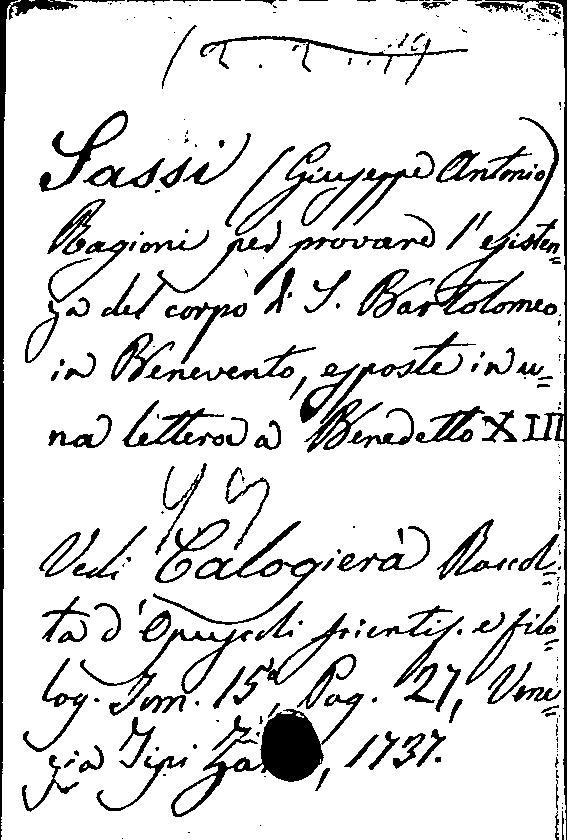 Sassi (Giuseppe Antonio)
Ragioni per provare l'esisten=
za del corpo di S. Bartolomeo
in Benevento, esposte in u=
na lettera a Benedetto XIII
Vedi Calogierà Raccol=
ta d'Opuscoli scientif. e filo=
log. Tom. 15°, Pag. 27, Vene=
zia Tipi , 1737.